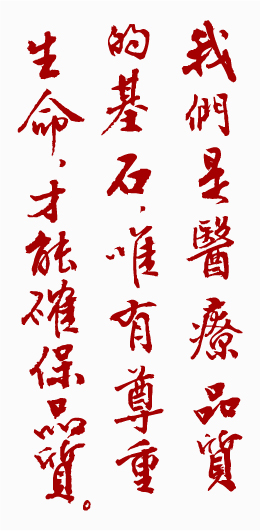 我們是醫療品質
的基石,唯有尊重
生命,才能確保品質。